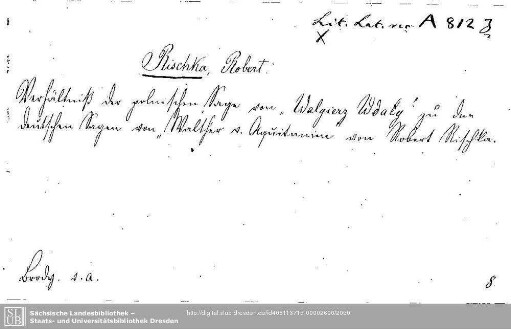 Lit. Lat. rec. A 812 z
X
Rischka, Robert.
Verhältniß der polnischen Sage von „Walgierz Wdały" zu den
deutschen Sagen von „Walther v. Aquitanien" von Robert Rischka.
Brody. s. a.
8
Sächsische Landesbibliothek –
Staats- und Universitätsbibliothek Dresden